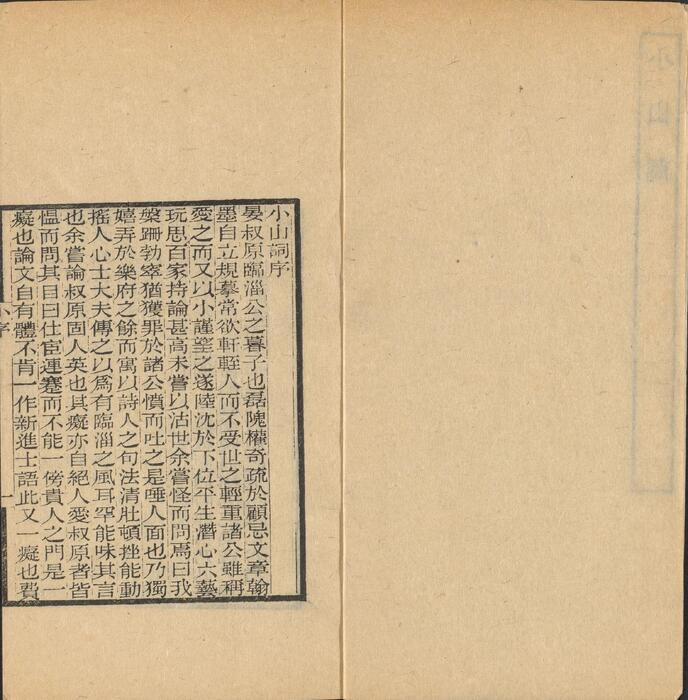 小山詞序
晏叔原臨淄公之暮子也磊隗權奇疏於顧忌文章翰
墨自立規摹常欲軒輊人而不受世之輕重諸公雖稱
愛之而又以小謹望之遂陸沈於下位平生潛心六藝
玩思百家持論甚高未嘗以沽世余嘗怪而問焉曰我
槃跚勃窣猶獲罪於諸公憤而吐之是唾人面也乃獨
嬉弄於樂府之餘而寓以詩人之句法清壯頓挫能動
搖人心士大夫傳之以爲有臨淄之風耳罕能味其言
也余嘗論叔原固人英也其癡亦自絕人愛叔原者皆
慍而問其目曰仕宦連蹇而不能一傍貴人之門是一
癡也論文自有體不肯一作新進士語此又一癡也費
小序
一